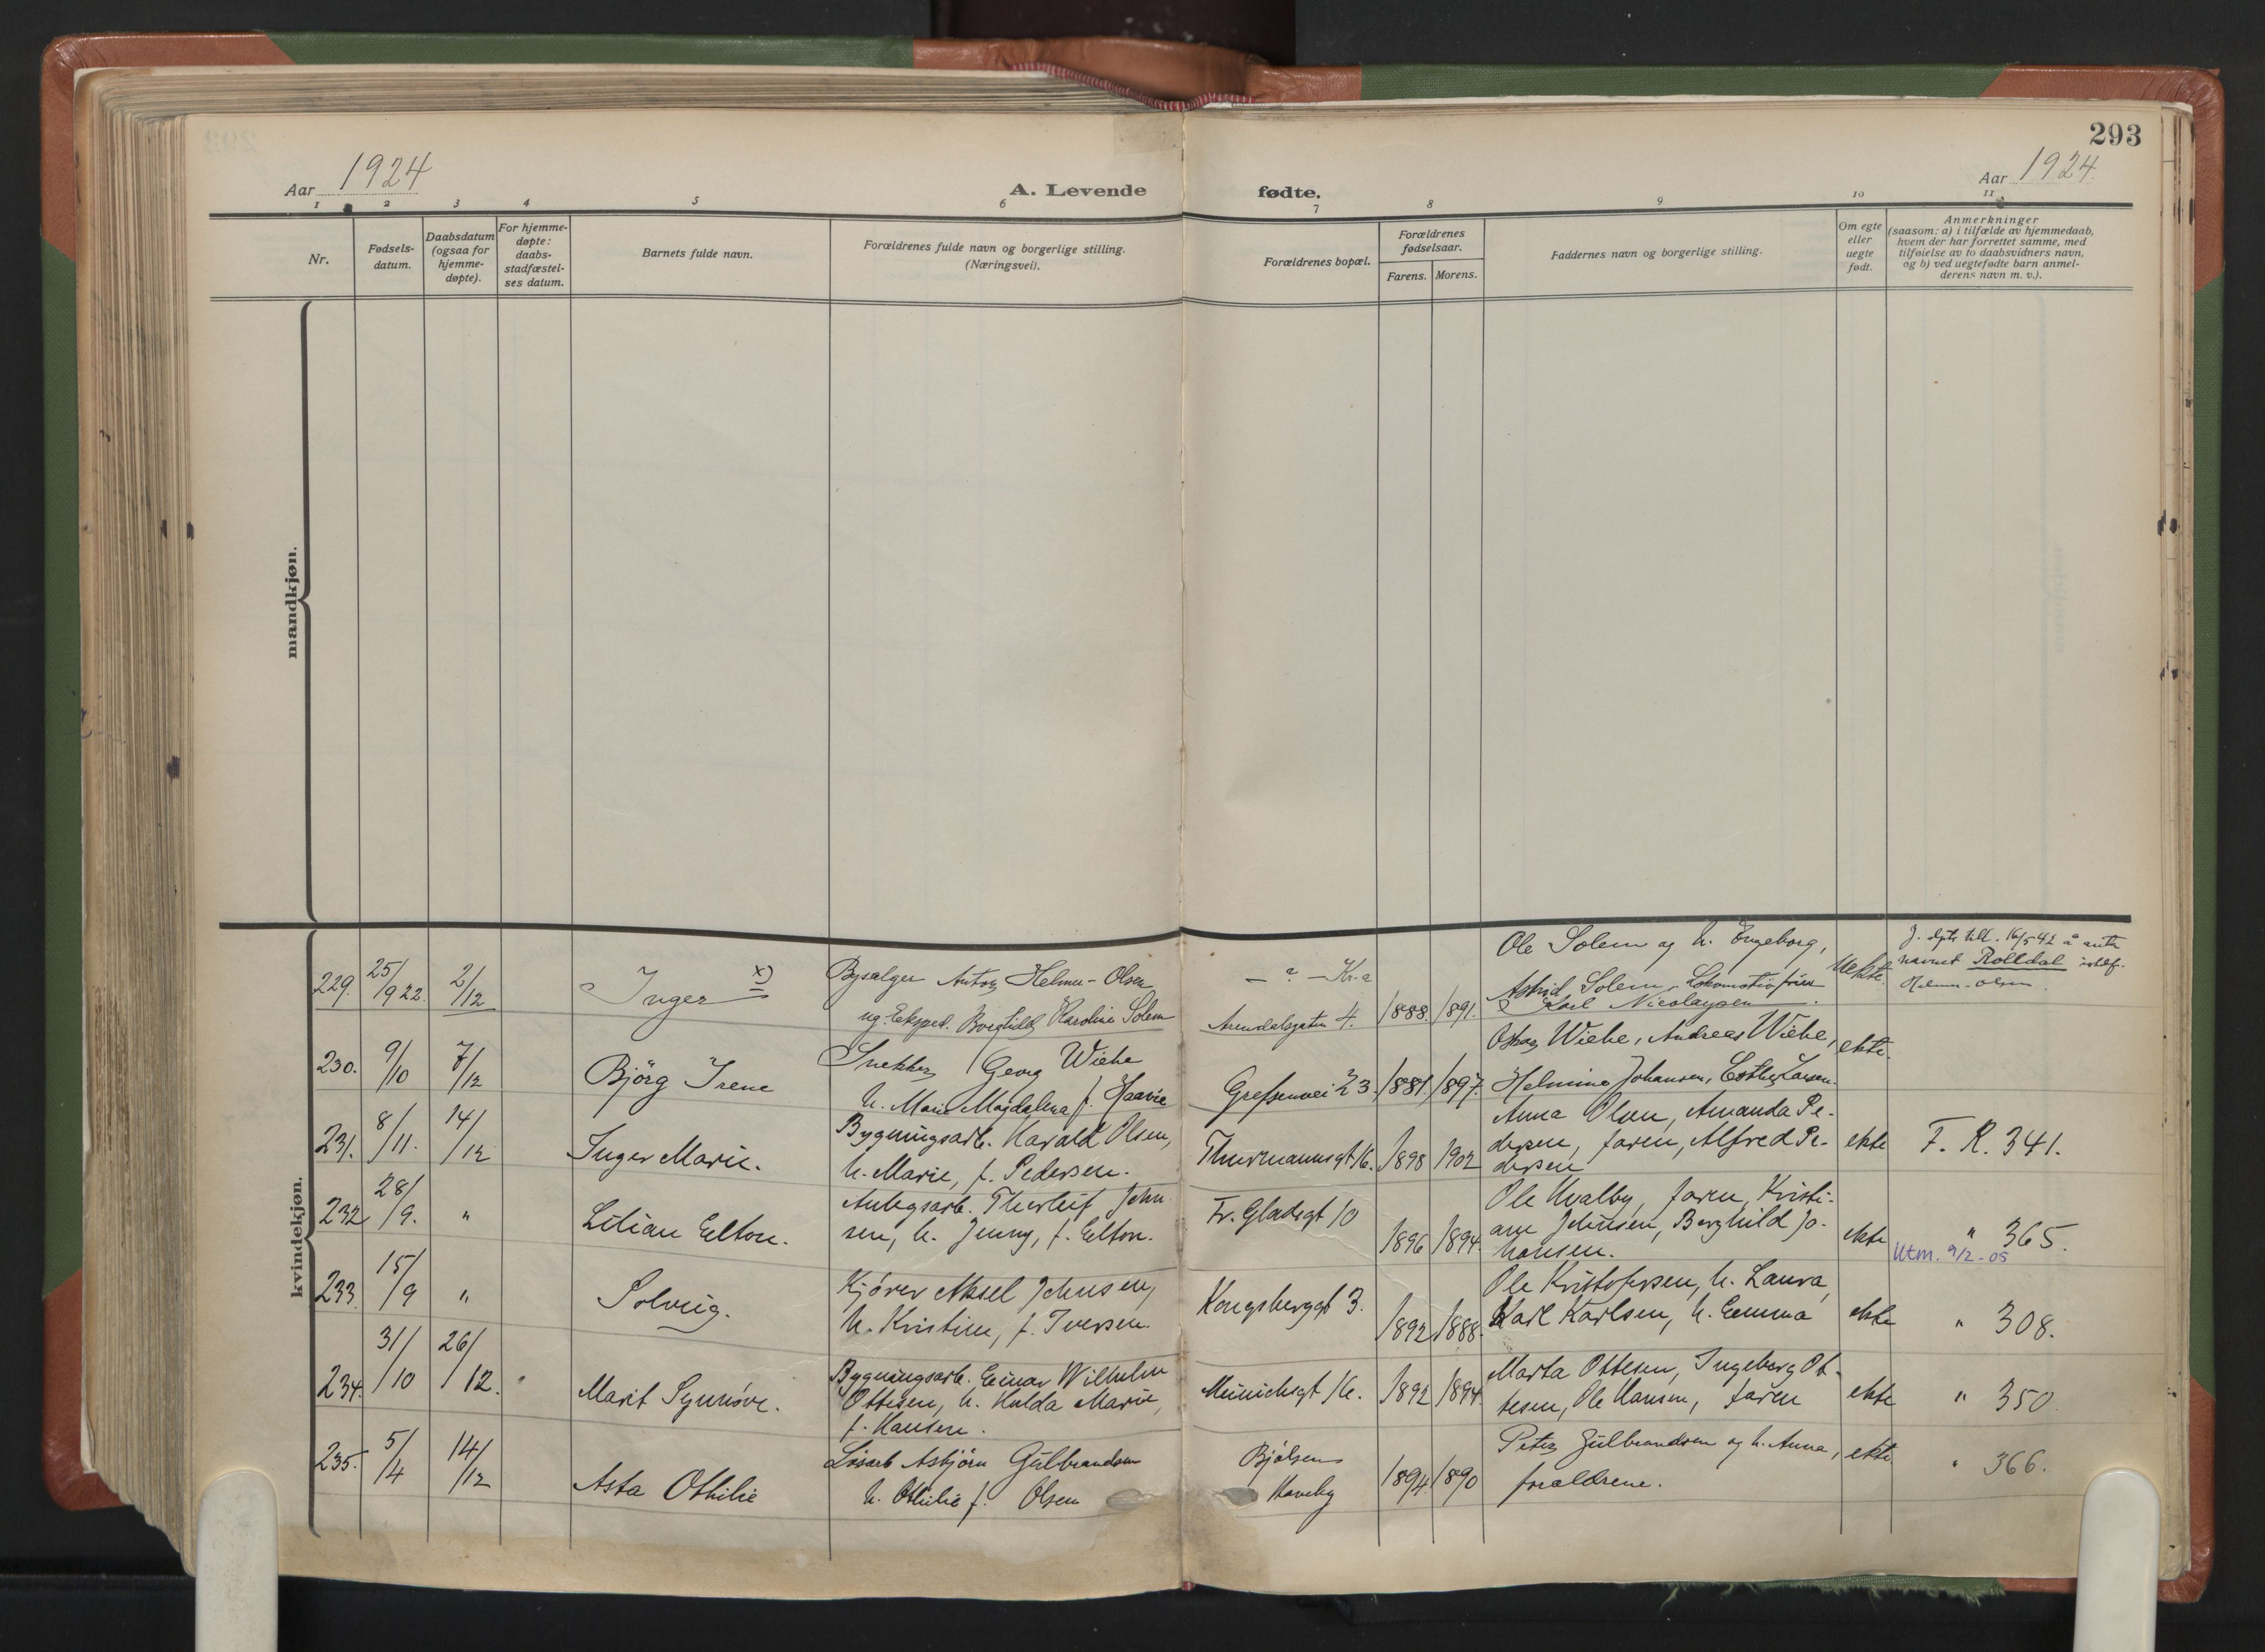 293
Aar 1924
A. Levende fødte.
Aar 1924.
1 2 3 4 5 6 7 8 9 10 11
Nr.
Fødsels-
datum.
Daabsdatum
(ogsaa for
hjemme-
døpte).
For hjemme-
døpte:
daabs-
stadfæstel-
ses datum.
Barnets fulde navn.
Forældrenes fulde navn og borgerlige stilling.
(Næringsvei).
Forældrenes bopæl.
Forældrenes
fødselsaar.
Farens. Morens.
Faddernes navn og borgerlige stilling.
Om egte
eller
uegte
født.
Anmerkninger
(saasom: a) i tilfælde av hjemmedaab,
hvem der har forrettet samme, med
tilføielse av to daabsvidners navn,
og b) ved uegtefødte barn anmel-
derens navn m. v.).
mandkjøn.
kvindekjøn.
229. 25/9 22. 2/12
Inger x)
Bysælger Anton Helmu-Olsen
ug. Eksped. Borghild Karoline Solem
— ? — Kr.a
Arendalsgaten 4.
1888. 1891.
Ole Solem og h. Ingeborg,
Astrid Solem, Lokomotivfører
Karl Nicolaysen.
Uekte.
J. dpts till. 16/5 42 å anta
navnet Rolldal istedf.
Helmu-Olsen.
230. 9/10 7/12
Björg Irene
Snekker Georg Wiehe
h. Marie Magdalena f. Haavie
Grefsenvei 23.
1881. 1897.
Oskar Wiehe, Andreas Wiehe,
Helmine Johansen, Esther Larsen.
ekte.
231. 8/11. 14/12
Inger Marie.
Bygningsarb. Harald Olsen,
h. Marie, f. Pedersen.
Thurmannsgt 16.
1898 1902
Anna Olsen, Amanda Pe-
dersen, faren, Alfred Pe-
dersen
ekte
F. R. 341.
232 28/9. "
Lilian Elton.
Anlegsarb. Thorleif John-
sen, h. Jenny, f. Elton.
Fr. Gladsgt 10
1896 1894.
Ole Hvalby, faren, Kristi-
ane Johnsen, Borghild Jo-
hansen.
ekte
" 365.
Utm. 9/2-05
233. 15/9 "
Solveig.
Kjörer Aksel Johnsen,
h. Kristine, f. Iversen.
Kongsberggt 3.
1892 1888.
Ole Kristofersen, h. Laura,
Karl Karlsen, h. Emma
ekte
" 308.
234. 31/10 26/12.
Marit Synnöve.
Bygningsarb. Einar Wilhelm
Ottesen, h. Hulda Marie,
f. Hansen.
Meinichsgt 16.
1892 1894.
Marta Ottesen, Ingeborg Ot-
tesen, Ole Hansen, faren
ekte
" 350
235. 5/4 14/12
Asta Othilie
Lösarb Asbjörn Gulbrandsen
h. Othilie f. Olsen
Bjölsens
Haveby
1894. 1890
Peter Gulbrandsen og h. Anna,
forældrene.
ekte.
" 366.